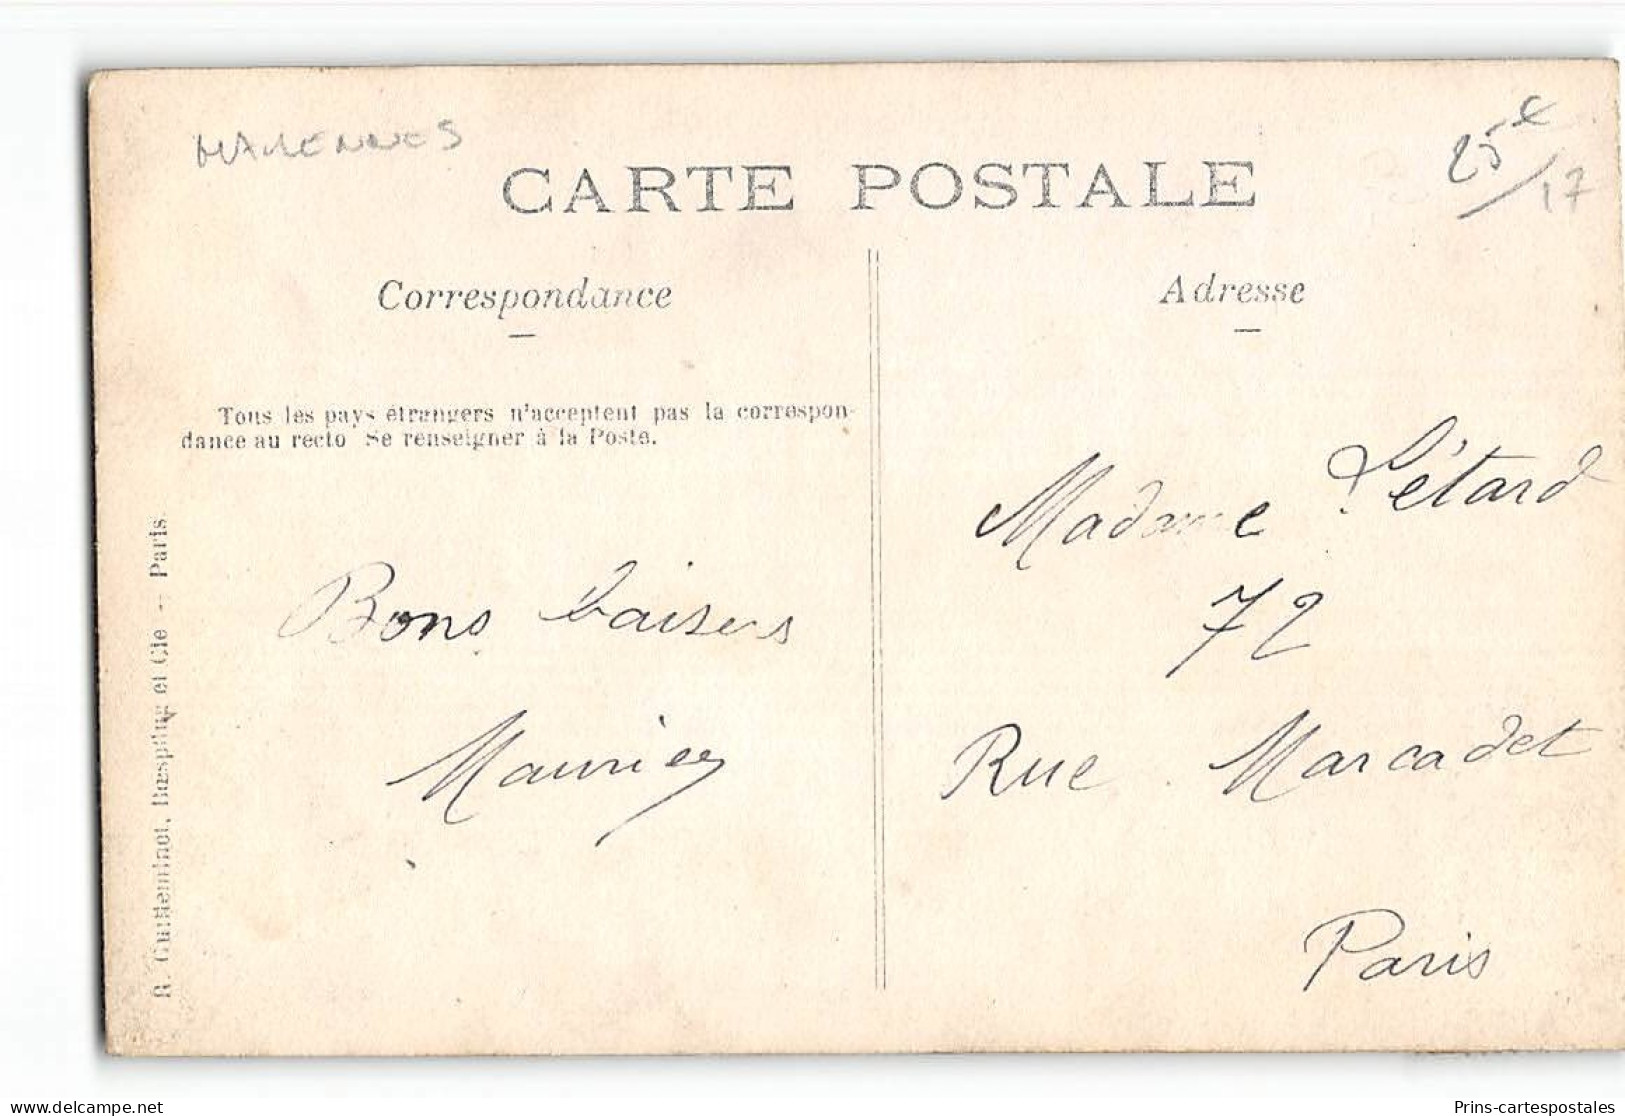 MARENNES
25 €/17
CARTE POSTALE
Correspondance
Adresse
Tous les pays étrangers n'acceptent pas la correspon-
dance au recto Se renseigner à la Poste.
Madame Létard
72
Rue Marcadet
Paris
Bons baisers
Maurice
R. Guilleminot, Bœspflug et Cie — Paris.
Delcampe.net
Prins-cartespostales